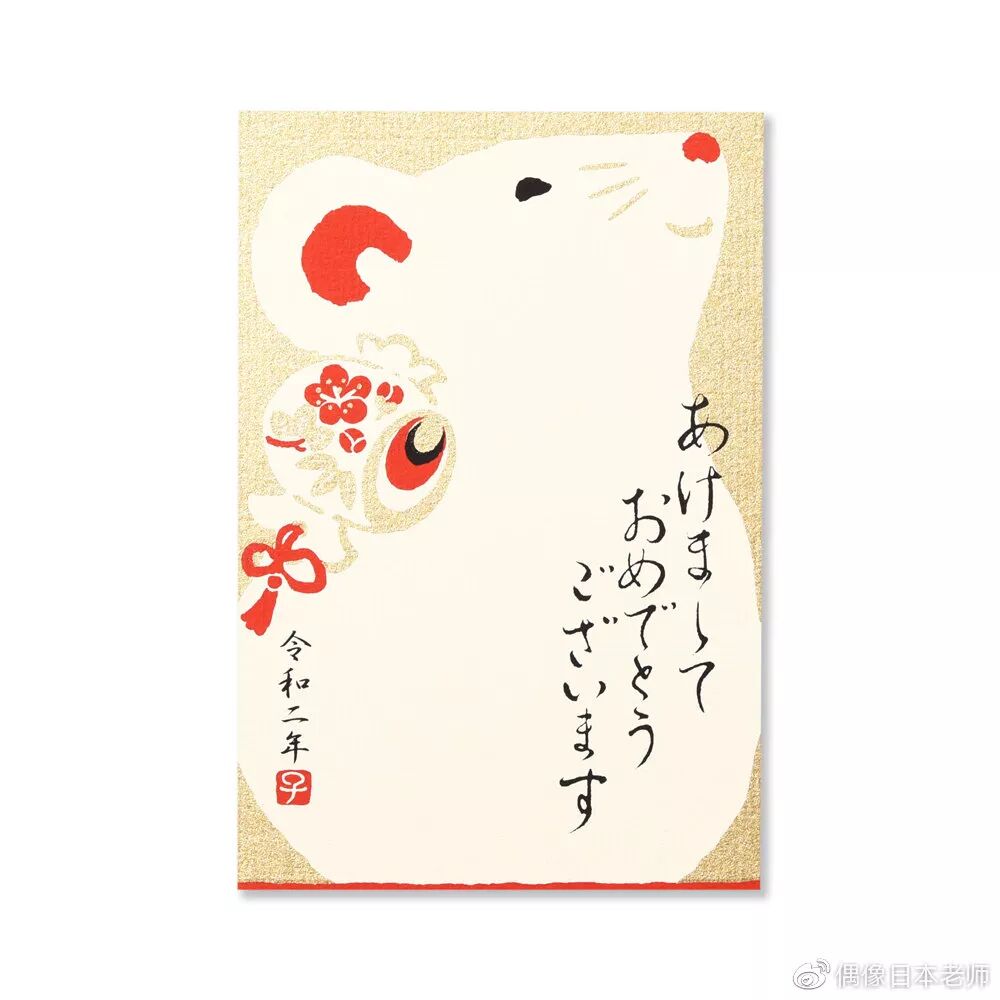 あけまして
おめでとう
ございます
令和二年
子
偶像日本老师